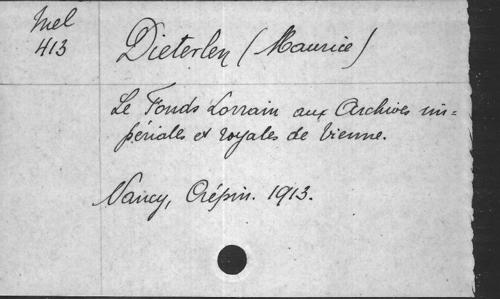 Mel
413
Dieterlen (Maurice)
Le Fonds Lorrain aux Archives im=
périales et royales de Vienne.
Nancy, Crépin. 1913.